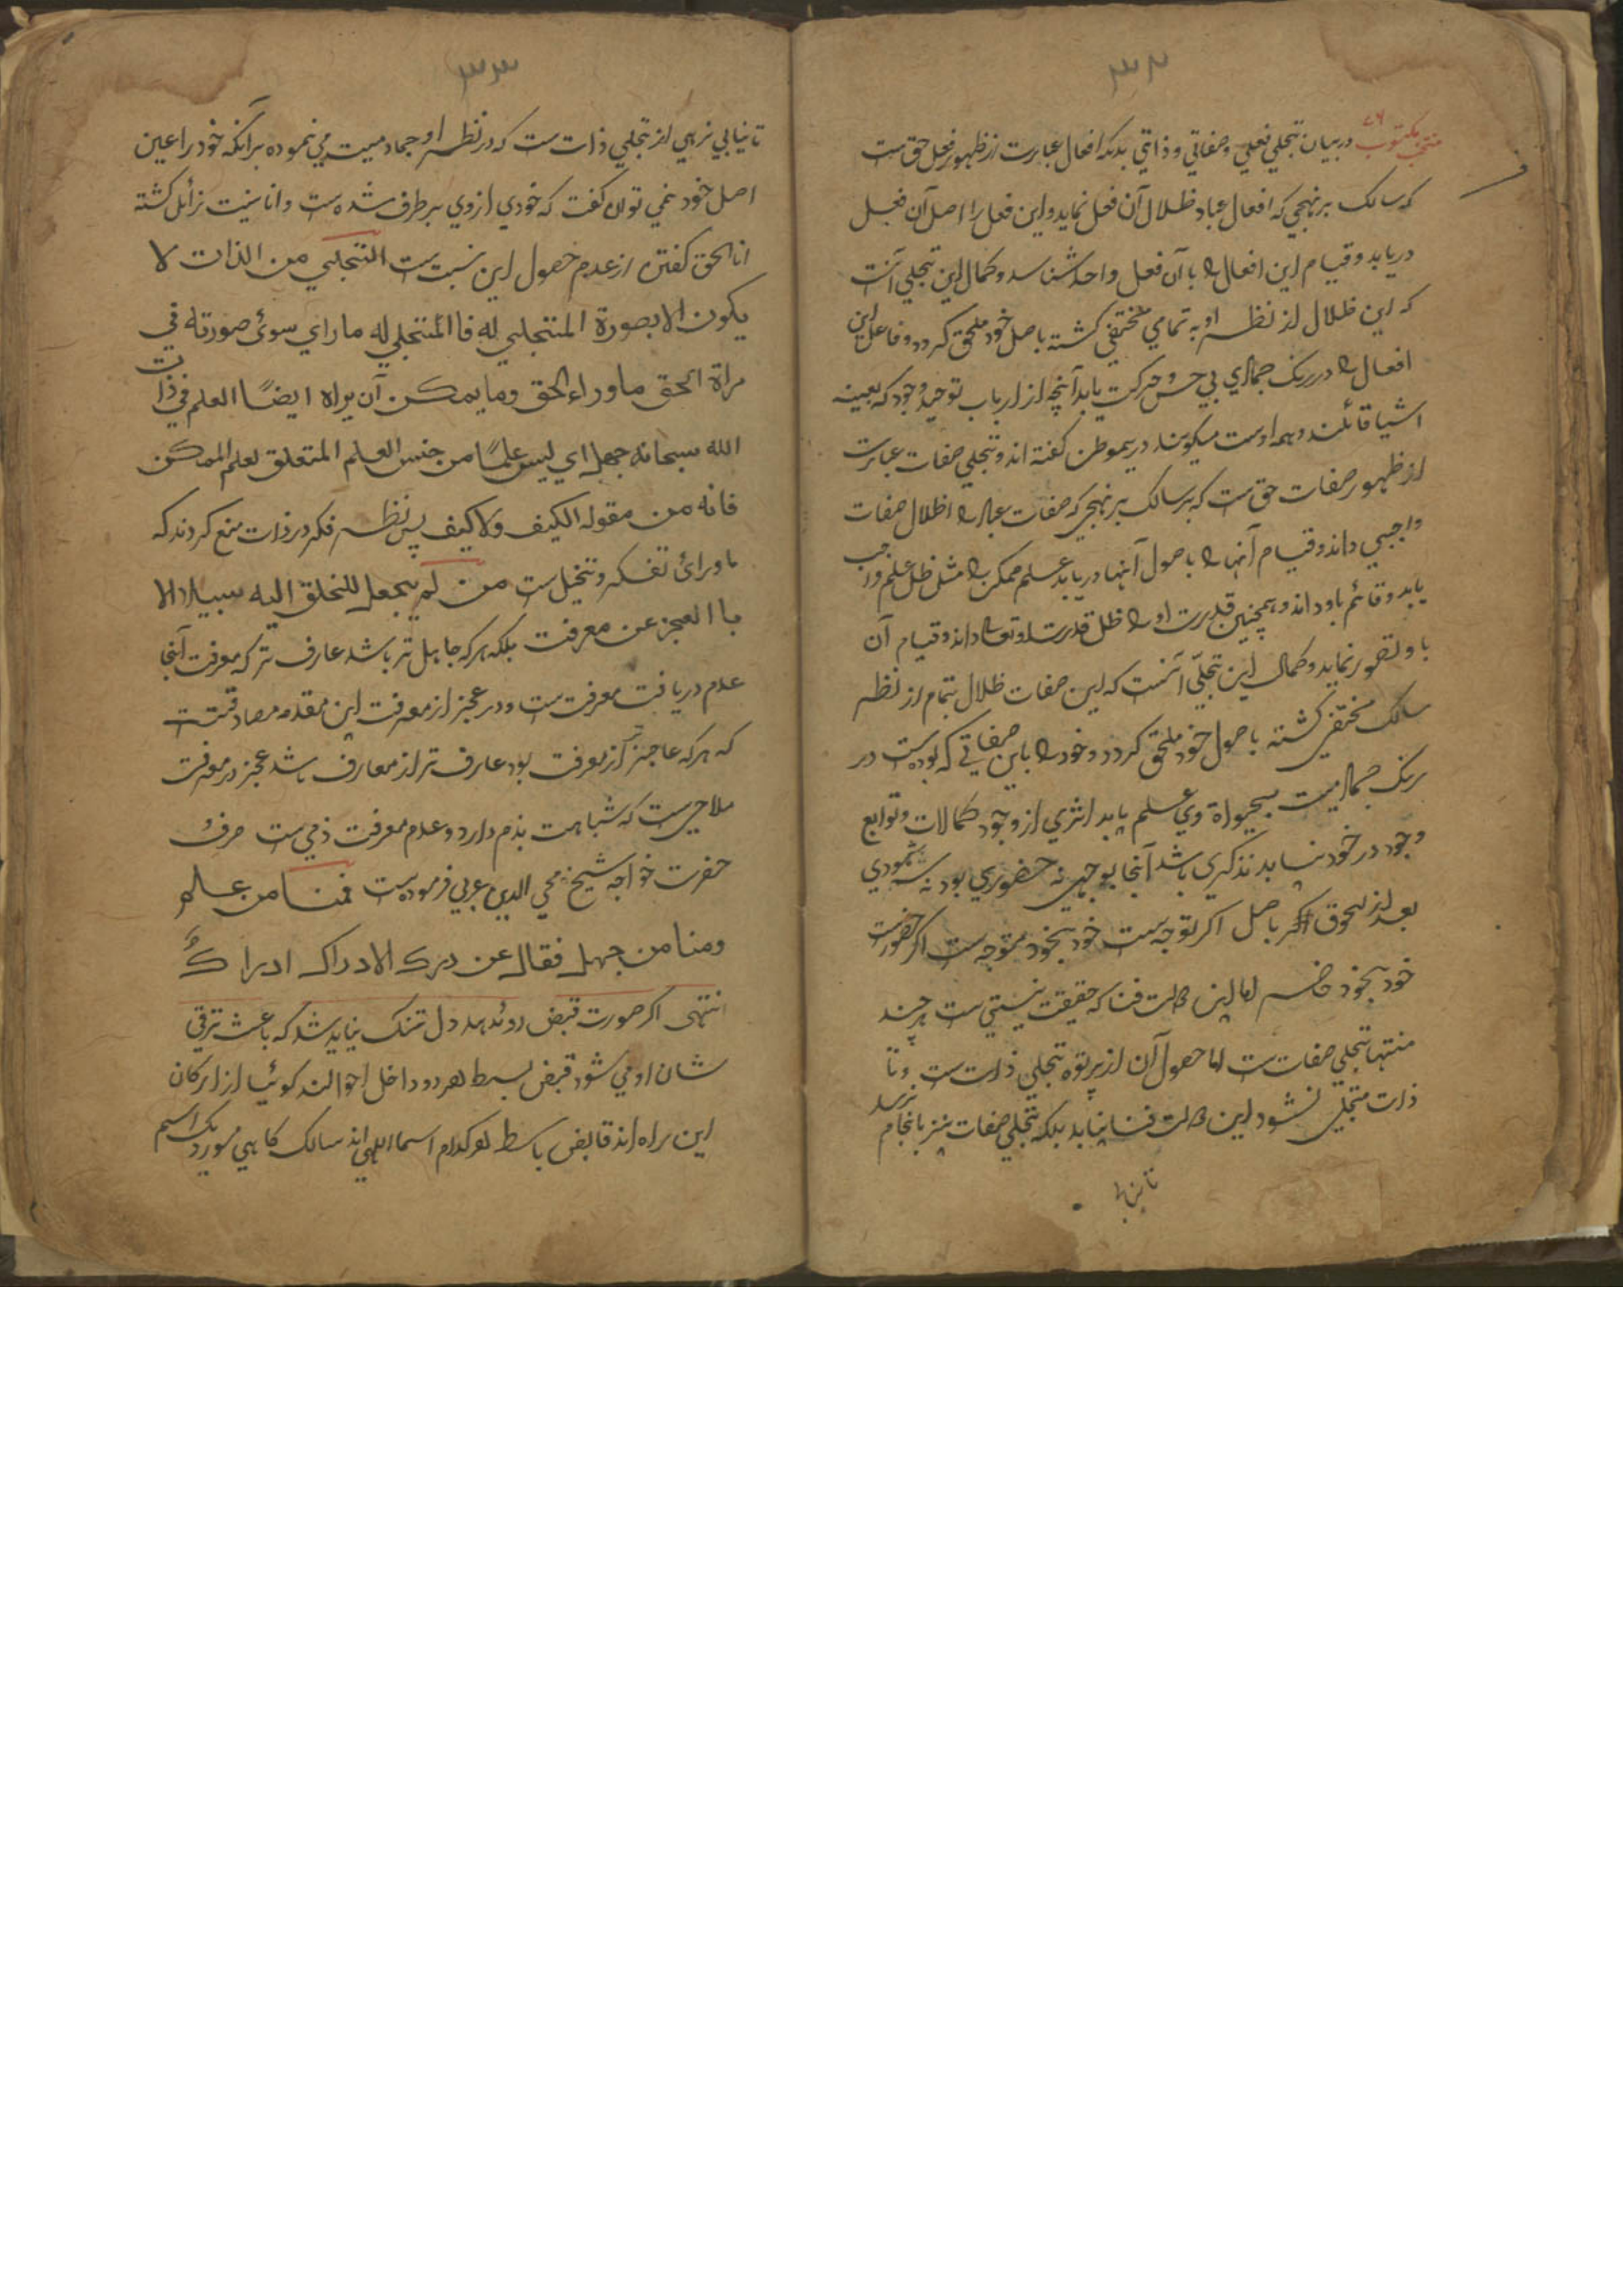 ۳۲
منتخب مکتوب ۷۶ در بیان تجلي فعلي و صفاتي و ذاتي بدانکه افعال عبارت از ظهور فعل حق ست
که سالک بر نهجي که افعال عباد ظلال آن فعل نماید و این فعل را اصل آن فعل
دریابد و قیام این افعال را با آن فعل واحد شناسد و کمال این تجلي آنست
که این ظلال از نظر او به تمامي مختفي کشته باصل خود ملحق کردد و فاعل این
افعال را در رنک جمادي بي حس و حرکت یابد آنچه از ارباب توحید وجود که بعینه
اشیا قائلند و همه اوست میکویند دریموطن کفته اند و تجلي صفات عبارت
از ظهور صفات حق ست که بر سالک بر نهجي که صفات عباد را ظلال صفات
واجبي داند و قیام آنها را باصول آنها دریابد علم ممکن را مثل ظل علم واجب
یابد و قائم باو داند و همچنین قدرت او را ظل قدرت او تعالی داند و قیام آن
باو تصور نماید و کمال این تجلّي آنست که این صفات ظلال بتمام از نظر
سالک مختفي کشته باصول خود ملحق کردد و خود را باین صفاتي که بوده ست در
رنک جماد میت بیحیوة وبي علم یابد اثري از وجود کمالات و توابع
وجود در خود نیابد نه ذکري باشد آنجا نه توجهي نه حضوري بود نه شهودي
بعد از لحوق باصل اکر توجه ست خود بخود متوجه ست اکر حضورست
خود بخود حاضر اما این حالت فنا که حقیقت نیستي ست هرچند
منتهاء تجلي صفات ست اما حصول آن از پرتوه تجلي ذات ست و تا
ذات متجلي نشود این حالت فنا نیابد بلکه تجلي صفات نیز بانجام نرسد
تا نیابي
۳۳
تا نیابي نرهي از تجلي ذات ست که در نظر او جماد میت مي نموده بر آنکه خود را عین
اصل خود نمي توان کفت که خودي از وي بر طرف شده ست و انانیت زائل کشته
انا الحق کفتن از عدم حصول این نسبت ست التجلي من الذات لا
یکون الا بصورة المتجلي له فا المتجلي له ما راي سوئ صورته في
مراة الحق ما وراء الحق وما یمکن آن یراه ایضًا العلم في ذات
الله سبحانه جهل اي لیس علمًا من جنس العلم المتعلق لعلم الممکن
فانه من مقوله الکیف ولا کیف پس نظر فکر در ذات منع کردند که
ماورائ تفکر و تخیل ست من لم یجعل للخلق الیه سبیلا الا
با العجز عن معرفت بلکه هرکه جاهل تر باشد عارف تر که معرفت آنجا
عدم دریافت معرفت ست و در عجز از معرفت این مقدمه صادقست
که هرکه عاجز تر از معرفت بود عارف تر از معارف باشد عجز در معرفت
ملاحي ست که شباهت بذم دارد و عدم معرفت ذمي ست صرف
حضرت خواجه شیخ محي الدین عربي فرموده ست فمنا من علم
ومنا من جهل فقال عن درک الادراک ادراکٌ
انتهی اکر صورت قبض رو ندهد دل تنک نباید شد که باعث ترقي
شان او مي شود قبض بسط هر دو داخل احوالند کوئیا از ارکان
این راه اند قابض باسط هر کدام اسماء الهي اند سالک کاهي مورد یک اسم